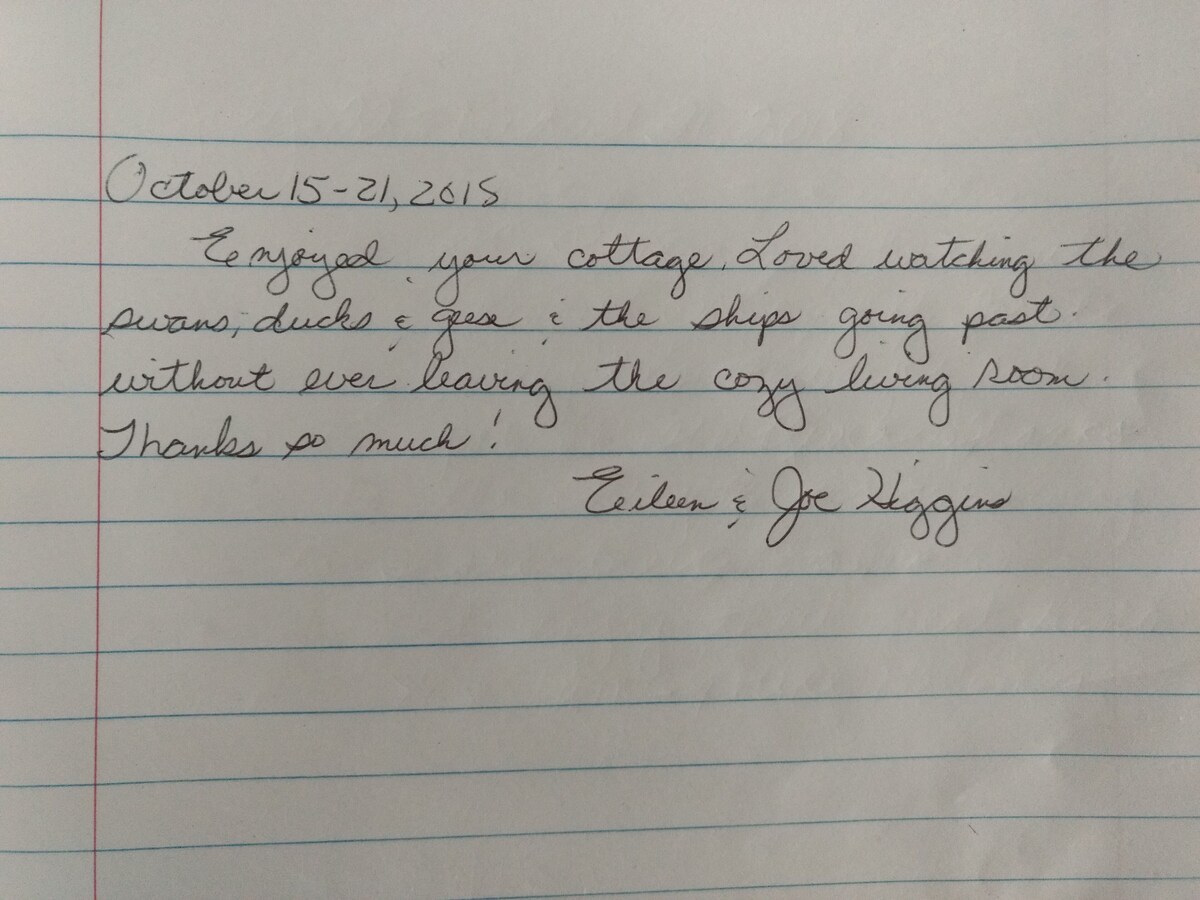 October 15-21, 2015
Enjoyed your cottage. Loved watching the
swans, ducks & geese & the ships going past.
without ever leaving the cozy living room.
Thanks so much!
Eileen & Joe Higgins